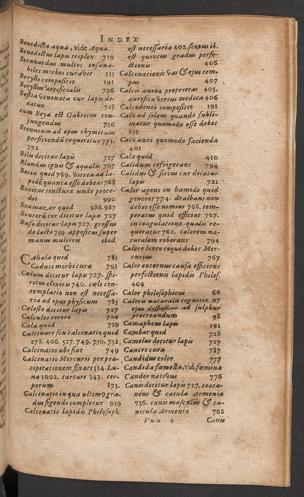 INDEX
Benedicta aqua, vide Aqua.
Benedictus lapis repletur 719
Bernhardus multos insana-
biles morbos curavit 555
Beryllus compositio 191
Beryllus artificialis 796
Bestia venenata cur lapis di-
catur 718
cum Beja est Gabricus con-
jungendus 736
Biennium ad opus chymicum
perficiendum requiritur 771.
772
Bilis dicitur lapis 727
Blandus ignis & aqualis 767
lapide quanta esse debeat 768
Bonitas tincturæ unde proce-
dit 990
Brumazar quid 986. 987
dicitur lapis 727
Bufo dicitur lapis 727.
de lacte 739. appositus super
manum mulieris ibid.
C.
Cabala quid 785
Caducus morbi cura 793
Cœlum dicitur lapis 727.
ritus elixir 740. cæli con-
templatio non est necessa-
ria ad opus physicum 785
Cæleste dicitur lapis 727
Calculus terere 728
Cala quid 739
Calcinare seu calcinatio quid
278. 406. 527. 749. 750. 752
Calcinatio ubi fiat 749
Calcinatio Mercurii per præ-
cipitationem fixati 334. Lu-
na 1002. tartari 543. cor-
porum 873.
Calcinatio in qua ultim9 gra-
dus ignis completur 929
Calcinatio lapidis Philosoph.
est necessaria 402. scopus ib.
est quintus gradus perfe-
ctionis 406
Calcinationis vas & ejus tem-
pus 407
Calcis aurea proprietas 405.
aurifica virtus medica 406
Calcedonii compositio 191
Calx ad solem quando subli-
matur quomodo esse debet
853
Calx auri quomodo facienda
401
Calx quid 410
Calidum refrigerans 794
Calidus & siccus cur dicatur
lapis 721
Calor agens in humido quid
generet 774. dealbans non
debet esse nimius 768. tem-
peratus quid efficiat 767.
in coagulatione qualis re-
quiratur 762. calorem na-
turalem roborans 794
Calore lento coquè debet Mer-
curius 767
Calor externus causa efficiens
perfectionis lapidis Philos.
404
Calor philosophicus 66
Caloris naturalis cognitio 97
ejus dispositio ad sulphur
procreandum 98
Camaphem lapis 191
Cambar quid 728
Camelus dicitur lapis 727
Cancri cura 787
Candidus color 777
Candida fœmella, vid. fœmina
Candor nativus 776
Canis dicitur lapis 727. corasc-
nus & catula Armenia
736. canis masculus & ca-
nicula Armenia 762
4 Canis